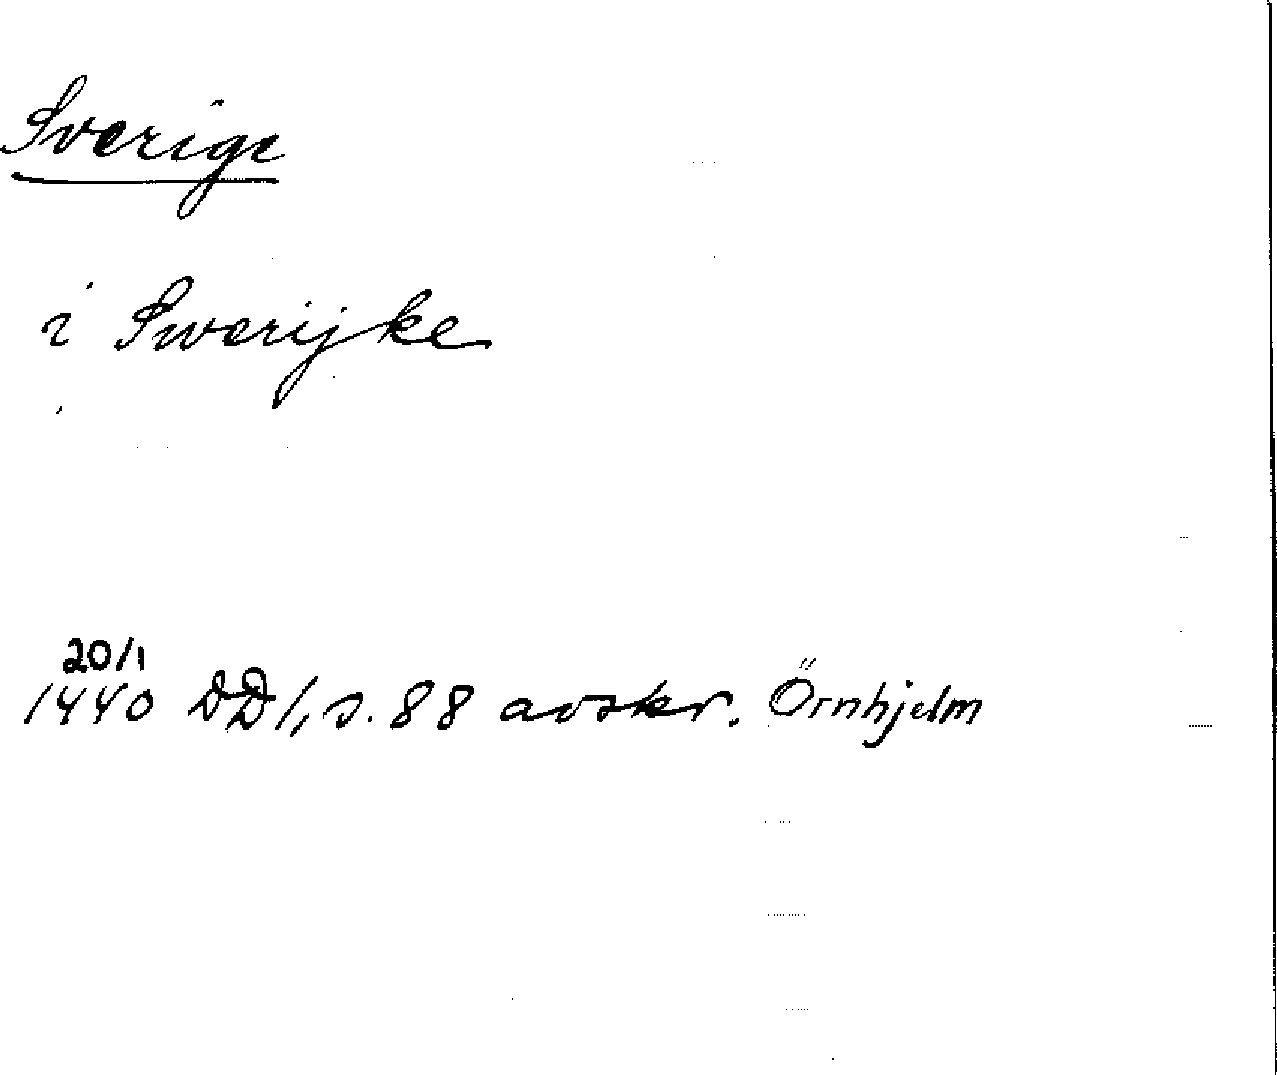 Sverige
i Swerijke
20/1
1440 DD 1, s. 88 avskr. Örnhjelm